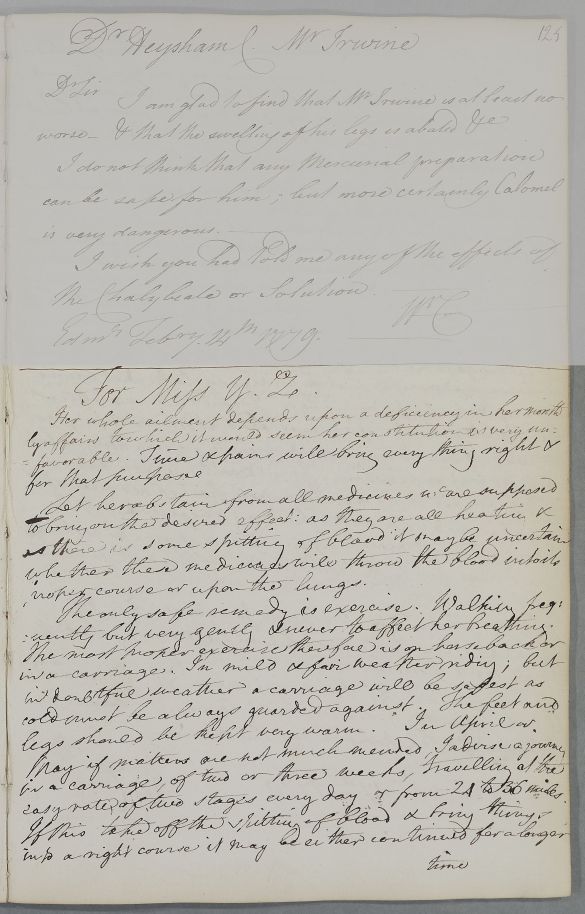 125
Dr Heysham C. Mr Irwine
Dr Sir
I am glad to find that Mr Irwine is at least no
worse – & that the swelling of his legs is abated &c
I do not think that any Mercurial preparation
can be safe for him; but more certainly Calomel
is very dangerous. –
I wish you had told me any of the effects of
the Chalybeate or Solution.
Wm C
Edinr. Febry. 14th 1779.
For Miss Y. Z.
Her whole ailment depends upon a deficiency in her month
ly affairs to which it would seem her constitution is very un-
-favorable. Time & pains will bring every thing right &
for that purpose
Let her abstain from all medicines wc are supposed
to bring on the desired effect: as they are all heating &
as there is some spitting of blood it may be uncertain
whether these medicines will throw the blood into its
proper course or upon the lungs.
The only safe remedy is exercise. Walking freq:
:uently but very gently & never to affect her breathing.
The most proper exercise therefore is on horseback or
in a carriage. In mild & fair weather riding; but
in doubtful weather a carriage will be safest as
cold must be always guarded against. The feet and
legs should be kept very warm. In April or
May if matters are not much mended, I advise a journey
in a carriage of two or three weeks, travelling at the
easy rate of two stages every day or from 24 to 36 miles.
If this take off the spitting of blood & bring things
into a right course it may be either continued for a longer
time